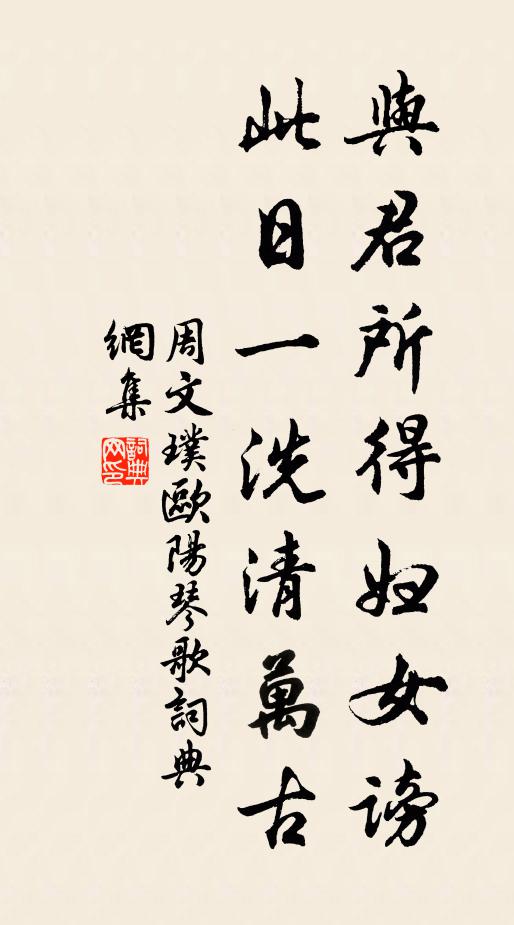 與君所得妇女謗
此日一洗清萬古
周文璞歐陽琴歌詞典
網集
詞典網印